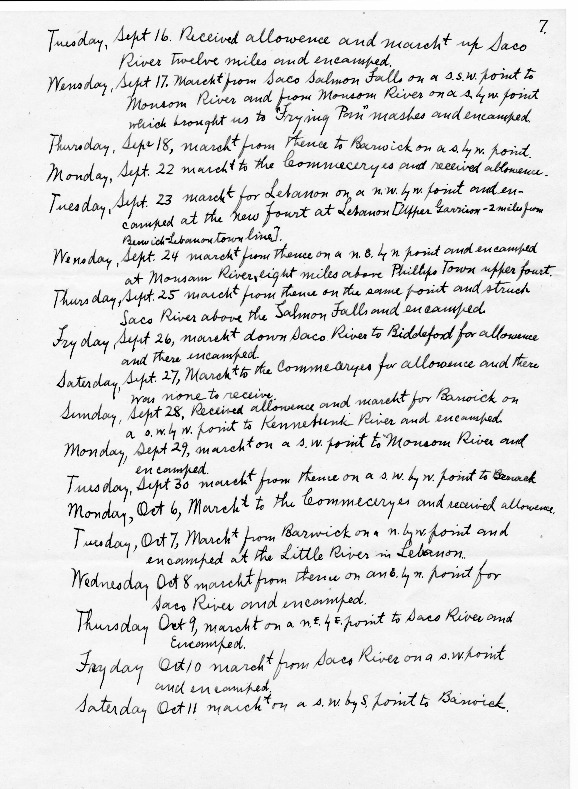 7.
Tuesday, Sept 16. Received allowence and marcht up Saco
River twelve miles and encamped.
Wensday, Sept 17. Marcht from Saco Salmon Falls on a s.s.w. point to
Monsom River and from Monsom River on a s. by w. point
which brought us to "Frying Pan" mashes and encamped.
Thursday, Sept 18, marcht from thence to Barwick on a s. by w. point.
Monday, Sept. 22 marcht to the Commeceryes and received allowence.
Tuesday, Sept. 23 marcht for Lebanon on a n.w. by w point and en-
camped at the new Fourt at Lebanon [Upper Garrison - 2 miles from
Berwick-Lebanon town line].
Wensday, Sept. 24 marcht from thence on a n.E. by n point and encamped
at Monsam River, eight miles above Phillips Town upper fourt.
Thursday, Sept. 25 marcht from thence on the same point and struck
Saco River above the Salmon Falls and encamped.
Fryday, Sept 26, marcht down Saco River to Biddeford for allowence
and there encamped.
Saterday, Sept. 27, Marcht to the Commeceryes for allowence and there
was none to receive.
Sunday, Sept 28, Received allowence and marcht for Barwick on
a s.w. by w. point to Kennebunk River and encamped.
Monday, Sept 29, marcht on a s.w. point to Monsom River and
encamped.
Tuesday, Sept 30 marcht from thence on a s.w. by w. point to
Monday, Oct 6, Marcht to the Commeceryes and received allowence.
Tuesday, Oct 7, Marcht from Barwick on a n. by w. point and
encamped at the Little River in Lebanon.
Wednesday Oct 8 marcht from thence on an E. by n. point for
Saco River and encamped.
Thursday Oct 9, marcht on a n.E. by E. point to Saco River and
Encamped.
Fryday Oct 10 marcht from Saco River on a s.w. point
and encamped.
Saterday Oct 11 marcht on a s.w. by S. point to Barwick.